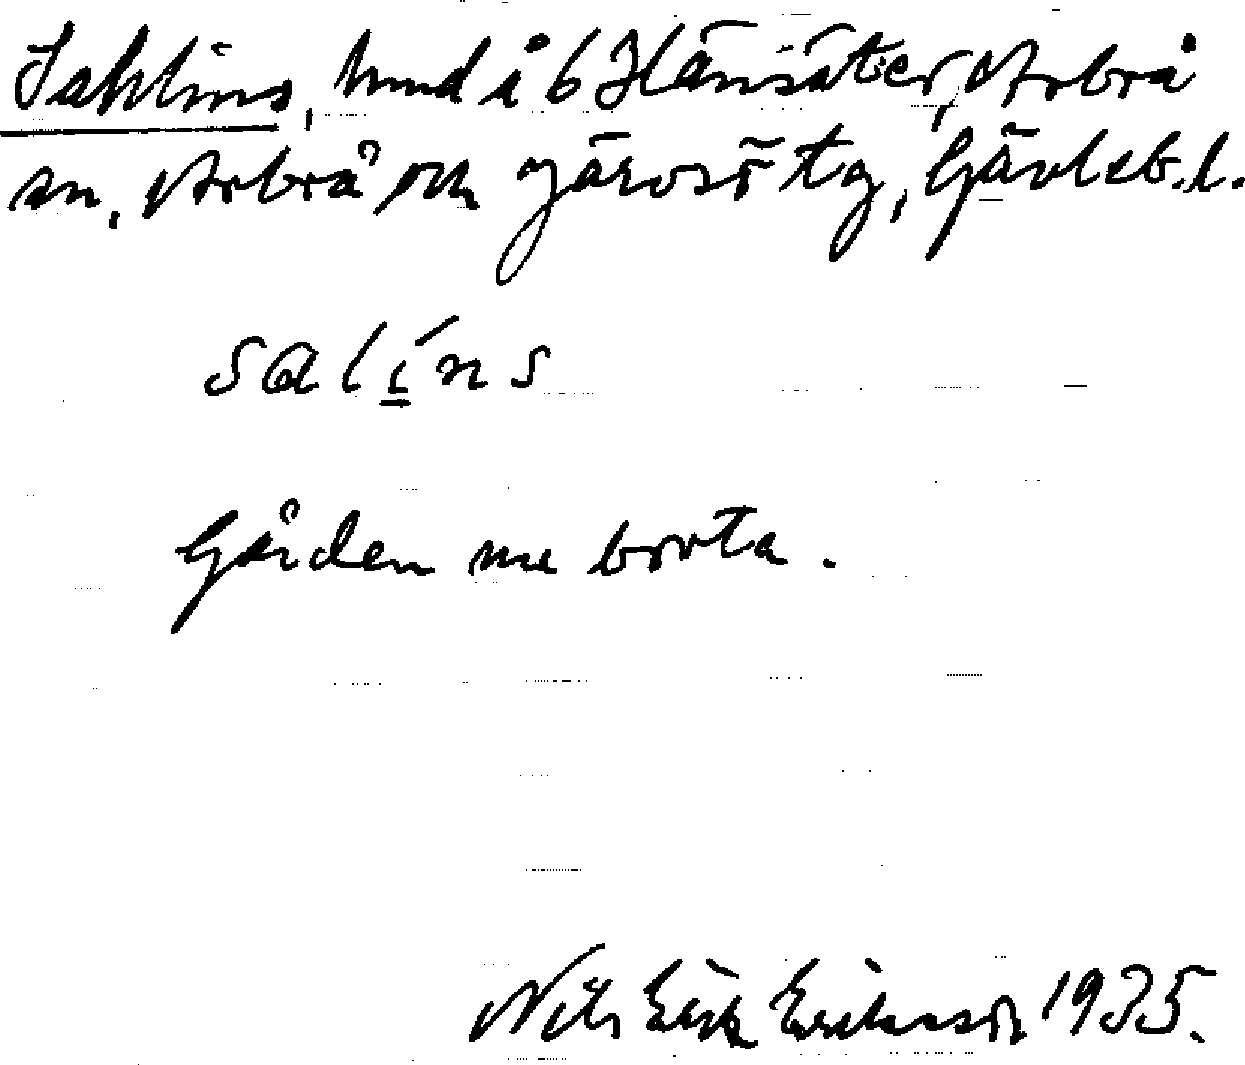 Sahlins, hmd å 6 Hänsäter, Arbrå
sn, Arbrå och Järvsö tg, Gävleb. l.
salíns
Gården nu borta.
Nils Erik Eriksson 1935.